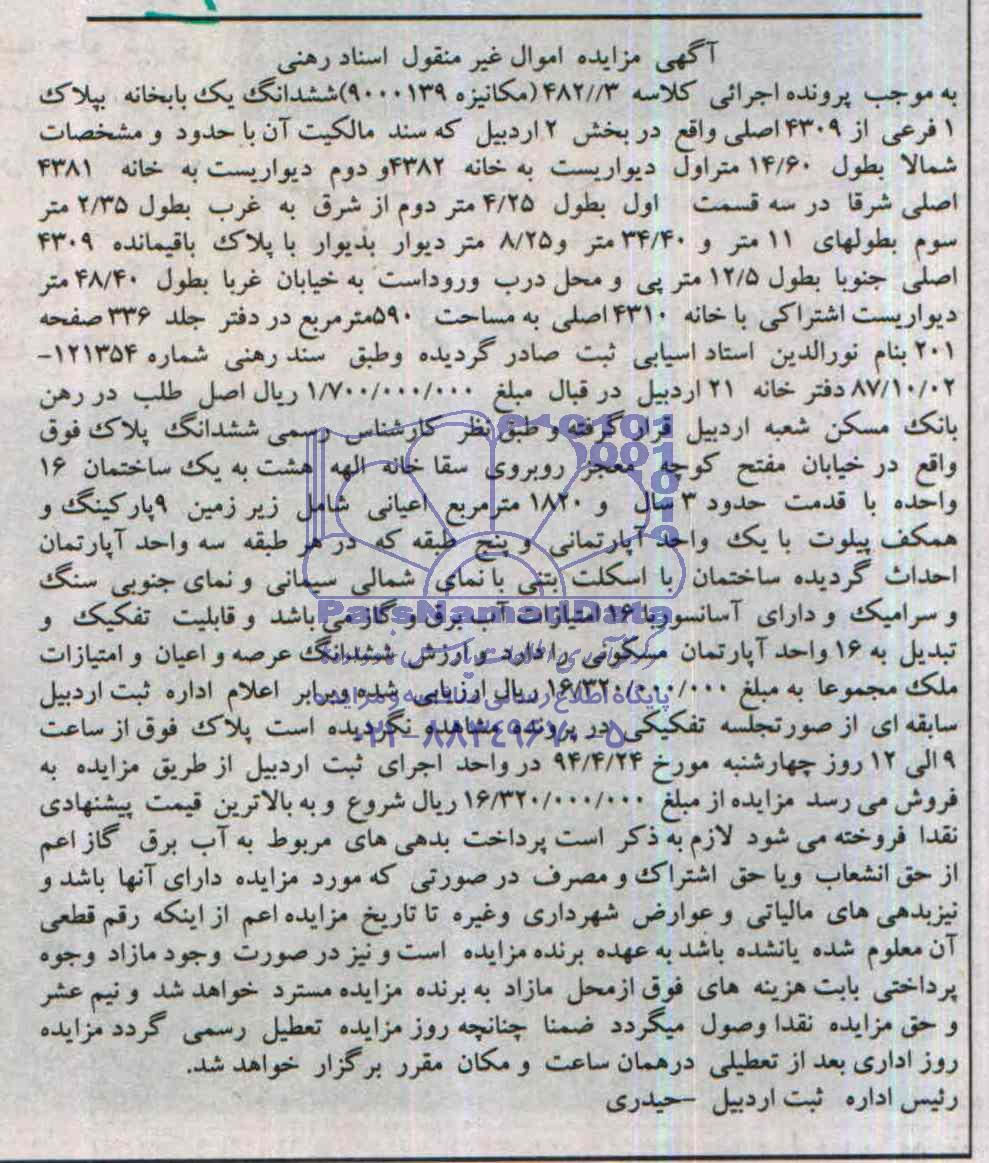 آگهی مزایده اموال غیر منقول اسناد رهنی
به موجب پرونده اجرائی کلاسه ۴۸۲//۳ (مکانیزه ۹۰۰۰۱۳۹)ششدانگ یک بابخانه بپلاک
۱ فرعی از ۴۳۰۹ اصلی واقع در بخش ۲ اردبیل که سند مالکیت آن با حدود و مشخصات
شمالا بطول ۱۴/۶۰ متراول دیواریست به خانه ۴۳۸۲و دوم دیواریست به خانه ۴۳۸۱
اصلی شرقا در سه قسمت اول بطول ۴/۲۵ متر دوم از شرق به غرب بطول ۲/۳۵ متر
سوم بطولهای ۱۱ متر و ۳۴/۴۰ متر و۸/۲۵ متر دیوار بدیوار با پلاک باقیمانده ۴۳۰۹
اصلی جنوبا بطول ۱۲/۵ متر پی و محل درب وروداست به خیابان غربا بطول ۴۸/۴۰ متر
دیواریست اشتراکی با خانه ۴۳۱۰ اصلی به مساحت ۵۹۰مترمربع در دفتر جلد ۳۳۶ صفحه
۲۰۱ بنام نورالدین استاد اسیابی ثبت صادر گردیده وطبق سند رهنی شماره ۱۲۱۳۵۴-
۸۷/۱۰/۰۲ دفتر خانه ۲۱ اردبیل در قبال مبلغ ۱/۷۰۰/۰۰۰/۰۰۰ ریال اصل طلب در رهن
بانک مسکن شعبه اردبیل قرار گرفته و طبق نظر کارشناس رسمی ششدانگ پلاک فوق
واقع در خیابان مفتح کوچه معجز روبروی سقا خانه الهه هشت به یک ساختمان ۱۶
واحده با قدمت حدود ۳ سال و ۱۸۲۰ مترمربع اعیانی شامل زیر زمین ۹پارکینگ و
همکف پیلوت با یک واحد آپارتمانی و پنج طبقه که در هر طبقه سه واحد آپارتمان
احداث گردیده ساختمان با اسکلت بتنی با نمای شمالی سیمانی و نمای جنوبی سنگ
و سرامیک و دارای آسانسور با ۱۶ امتیازات آب برق و گاز می باشد و قابلیت تفکیک و
تبدیل به ۱۶ واحد آپارتمان مسکونی را دارد و ارزش ششدانگ عرصه و اعیان و امتیازات
ملک مجموعا به مبلغ ۱۶/۳۲۰/۰۰۰/۰۰۰ ریال ارزیابی شده وبرابر اعلام اداره ثبت اردبیل
سابقه ای از صورتجلسه تفکیکی در پرونده مشاهده نگردیده است پلاک فوق از ساعت
۹ الی ۱۲ روز چهارشنبه مورخ ۹۴/۴/۲۴ در واحد اجرای ثبت اردبیل از طریق مزایده به
فروش می رسد مزایده از مبلغ ۱۶/۳۲۰/۰۰۰/۰۰۰ ریال شروع و به بالاترین قیمت پیشنهادی
نقدا فروخته می شود لازم به ذکر است پرداخت بدهی های مربوط به آب برق گاز اعم
از حق انشعاب ویا حق اشتراک و مصرف در صورتی که مورد مزایده دارای آنها باشد و
نیزبدهی های مالیاتی و عوارض شهرداری وغیره تا تاریخ مزایده اعم از اینکه رقم قطعی
آن معلوم شده یانشده باشد به عهده برنده مزایده است و نیز در صورت وجود مازاد وجوه
پرداختی بابت هزینه های فوق ازمحل مازاد به برنده مزایده مسترد خواهد شد و نیم عشر
و حق مزایده نقدا وصول میگردد ضمنا چنانچه روز مزایده تعطیل رسمی گردد مزایده
روز اداری بعد از تعطیلی درهمان ساعت و مکان مقرر برگزار خواهد شد.
رئیس اداره ثبت اردبیل -حیدری
ParsNamadData
پایگاه اطلاع رسانی مناقصه و مزایده